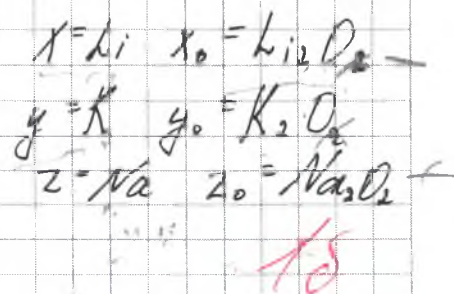 x = Li x₀ = Li₂O₂ —
y = K y₀ = K₂O₂
z = Na z₀ = Na₂O₂ —
1δ